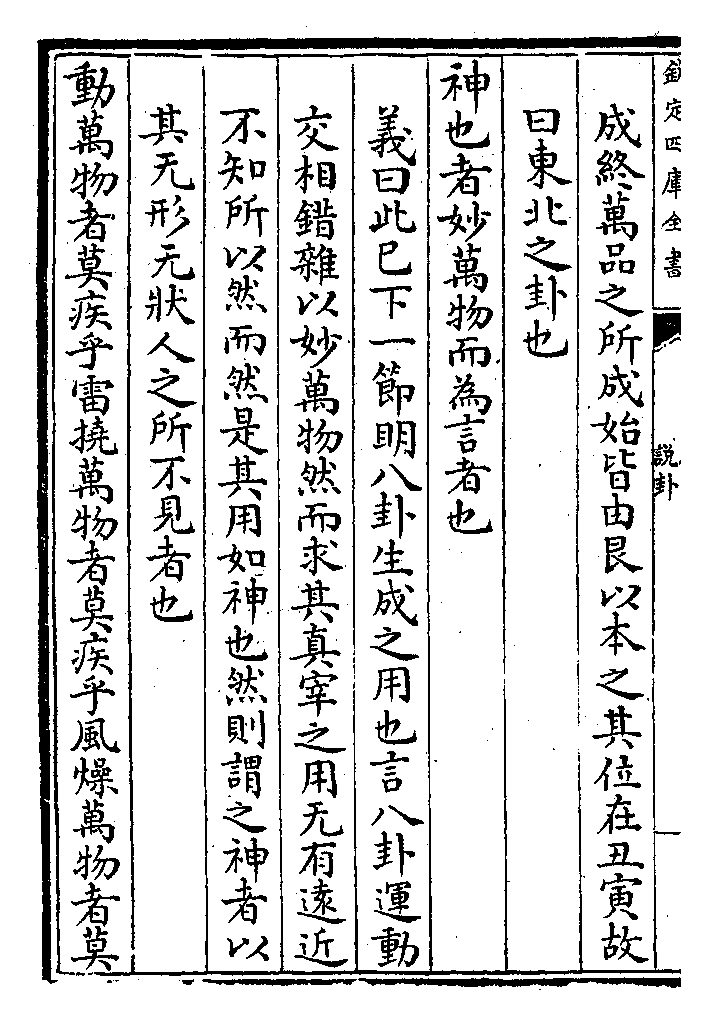 欽定四庫全書
說卦
成終萬品之所成始皆由艮以本之其位在丑寅故
曰東北之卦也
神也者妙萬物而為言者也
義曰此已下一節明八卦生成之用也言八卦運動
交相錯雜以妙萬物然而求其真宰之用无有遠近
不知所以然而然是其用如神也然則謂之神者以
其无形无狀人之所不見者也
動萬物者莫疾乎雷撓萬物者莫疾乎風燥萬物者莫